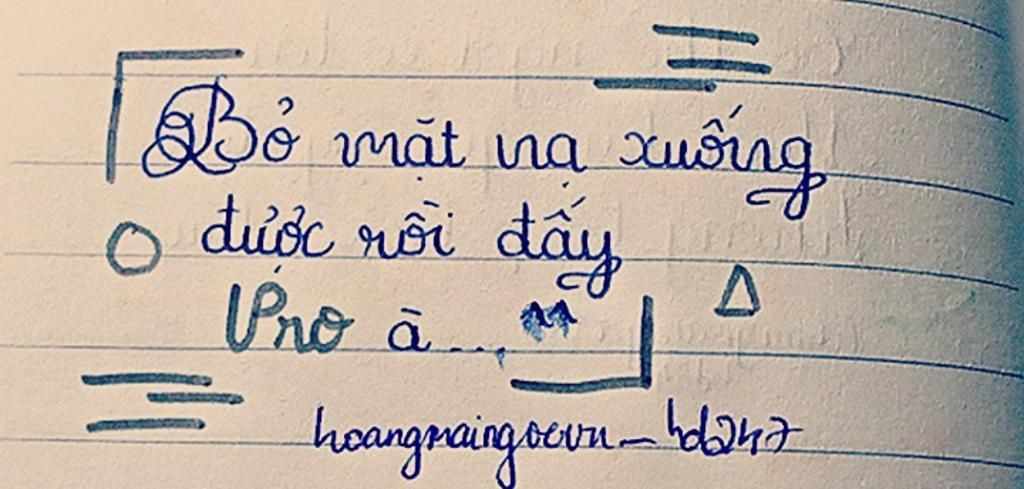 Bỏ mặt nạ xuống
được rồi đấy
Pro à...
hoangmaingocvn_hd247